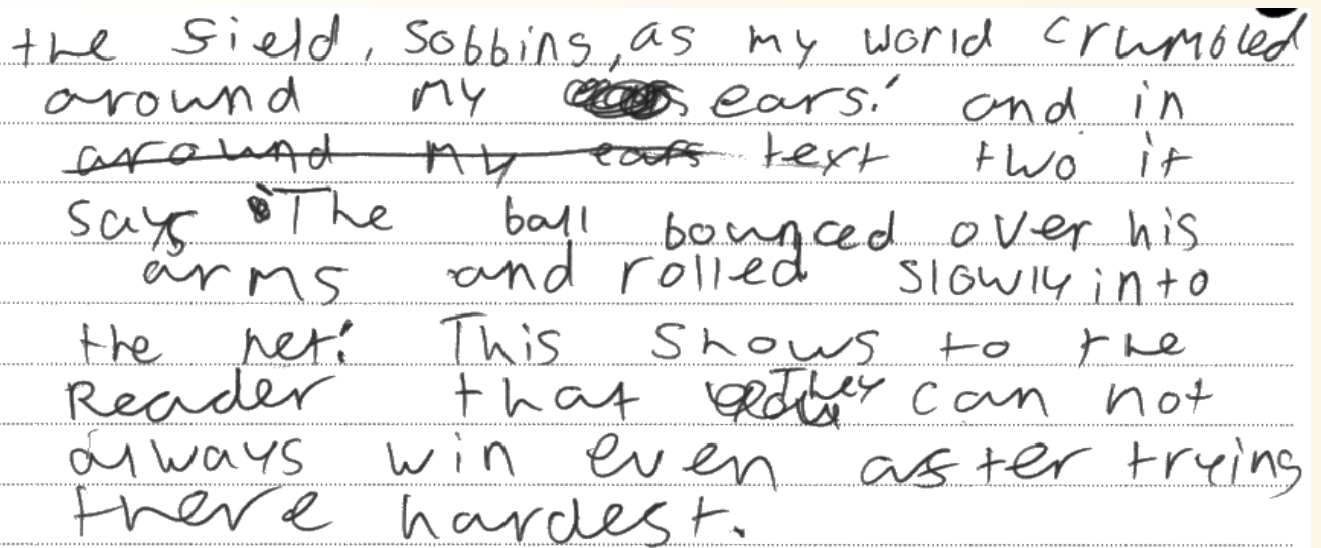 the field, sobbing, as my world crumbled
around my ears.' and in
around my ears text two it
says 'The ball bounced over his
arms and rolled slowly into
the net.' This shows to the
Reader that They can not
always win even after trying
there hardest.